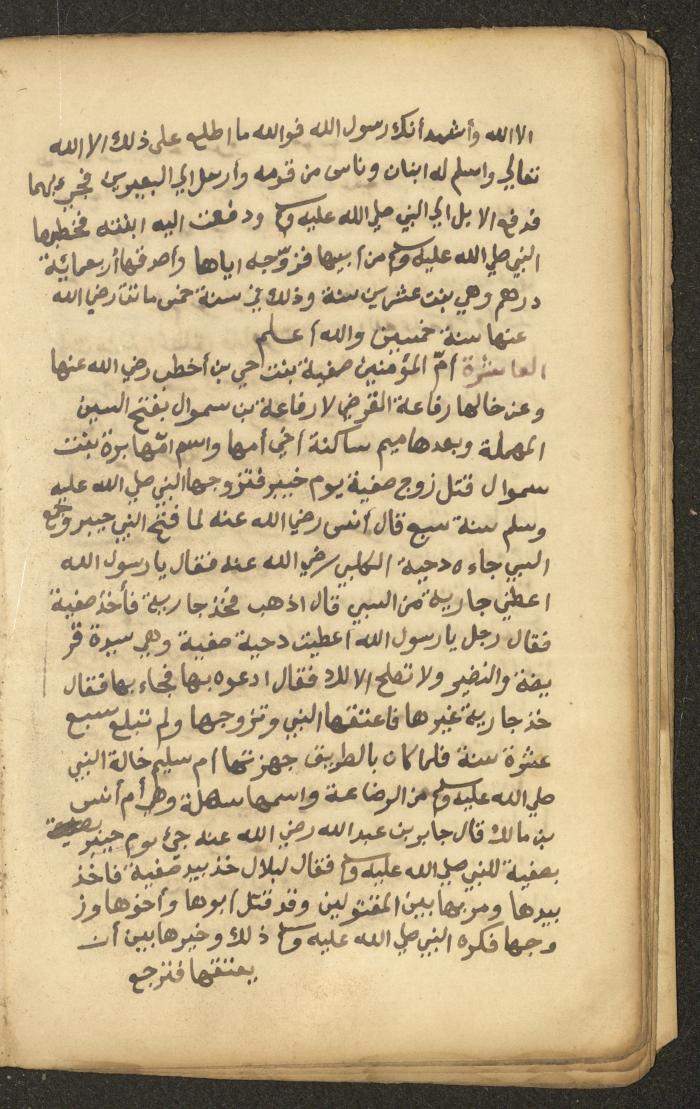 الاالله وأشهد أنك رسول الله فوالله ما اطلع على ذلك الا الله
تعالي واسلم له ابنان وناس من قومه وأرسل الي البعيرين فجيء بهما
فدفع الابل الي النبي صلي الله عليه وسلم ودفعت اليه ابنته فخطبها
النبي صلي الله عليه وسلم من أبيها فزوّجه اياها وأصدقها أربعمائة
درهم وهي بنت عشرين سنة وذلك في سنة خمس ماتت رضي الله
عنها سنة خمسين والله أعلم
العاشرة أمّ المؤمنين صفية بنت حي بن أخطب رضي الله عنها
وعن خالها رفاعة القرضي لارفاعة بن سموال بفتح السين
المهملة وبعدها ميم ساكنة أخي أمها واسم امّها برة بنت
سموال قتل زوج صفية يوم خيبر فتزوجها النبي صلي الله عليه
وسلم سنة سبع قال أنس رضي الله عنه لما فتح النبي خيبر وجمع
السبي جاءه دحية الكلبي رضي الله عنه فقال يارسول الله
اعطني جارية من السبي قال اذهب فخذ جارية فأخذ صفية
فقال رجل يارسول الله اعطيت دحية صفية وهي سيدة قر
يضة والنضير ولا تصلح الا لك فقال ادعوه بها فجاء بها فقال
خذ جارية غيرها فاعتقها النبي وتزوجها ولم تبلغ سبع
عشرة سنة فلما كان بالطريق جهزتها أم سليم خالة النبي
صلي الله عليه وسلم من الرضاعة واسمها سهلة وهي أم أنس
بن مالك قال جابر بن عبد الله رضي الله عنه جئ يوم خيبر
بصفية للنبي صلي الله عليه وسلم فقال لبلال خذ بيد صفية فاخذ
بيدها ومر بها بين المقتولين وقد قتل أبوها وأخوها وز
وجها فكره النبي صلي الله عليه وسلم ذلك وخيرها بين أن
يعتقها فترجع